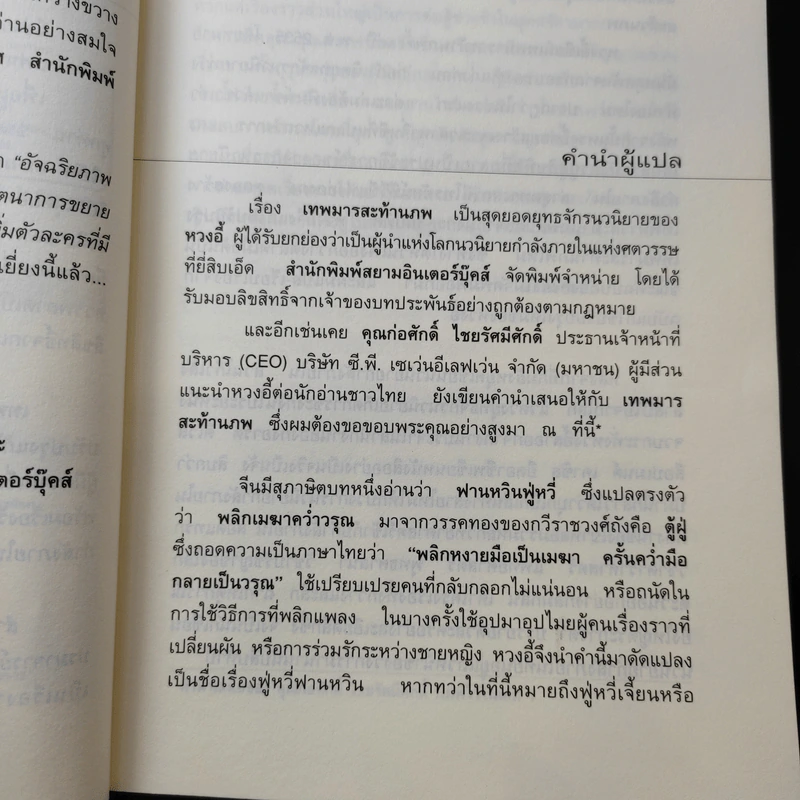 กว้างขวาง
านอย่างสมใจ
สำนักพิมพ์
"อัจฉริยภาพ
ตนาการขยาย
ิ่มตัวละครที่มี
เยี่ยงนี้แล้ว...
ตอร์บุ๊คส์
คำนำผู้แปล
เรื่อง เทพมารสะท้านภพ เป็นสุดยอดยุทธจักรนวนิยายของ
หวงอี้ ผู้ได้รับยกย่องว่าเป็นผู้นำแห่งโลกนวนิยายกำลังภายในแห่งศตวรรษ
ที่ยี่สิบเอ็ด สำนักพิมพ์สยามอินเตอร์บุ๊คส์ จัดพิมพ์จำหน่าย โดยได้
รับมอบลิขสิทธิ์จากเจ้าของบทประพันธ์อย่างถูกต้องตามกฎหมาย
และอีกเช่นเคย คุณก่อศักดิ์ ไชยรัศมีศักดิ์ ประธานเจ้าหน้าที่
บริหาร (CEO) บริษัท ซี.พี. เซเว่นอีเลฟเว่น จำกัด (มหาชน) ผู้มีส่วน
แนะนำหวงอี้ต่อนักอ่านชาวไทย ยังเขียนคำนำเสนอให้กับ เทพมาร
สะท้านภพ ซึ่งผมต้องขอขอบพระคุณอย่างสูงมา ณ ที่นี้*
จีนมีสุภาษิตบทหนึ่งอ่านว่า ฟานหวินฟู่หวี่ ซึ่งแปลตรงตัว
ว่า พลิกเมฆาคว่ำวรุณ มาจากวรรคทองของกวีราชวงศ์ถังคือ ตู้ฝู่
ซึ่งถอดความเป็นภาษาไทยว่า "พลิกหงายมือเป็นเมฆา ครั้นคว่ำมือ
กลายเป็นวรุณ" ใช้เปรียบเปรยคนที่กลับกลอกไม่แน่นอน หรือถนัดใน
การใช้วิธีการที่พลิกแพลง ในบางครั้งใช้อุปมาอุปไมยผู้คนเรื่องราวที่
เปลี่ยนผัน หรือการร่วมรักระหว่างชายหญิง หวงอี้จึงนำคำนี้มาดัดแปลง
เป็นชื่อเรื่องฟู่หวี่ฟานหวิน หากทว่าในที่นี้หมายถึงฟู่หวี่เจี้ยนหรือ